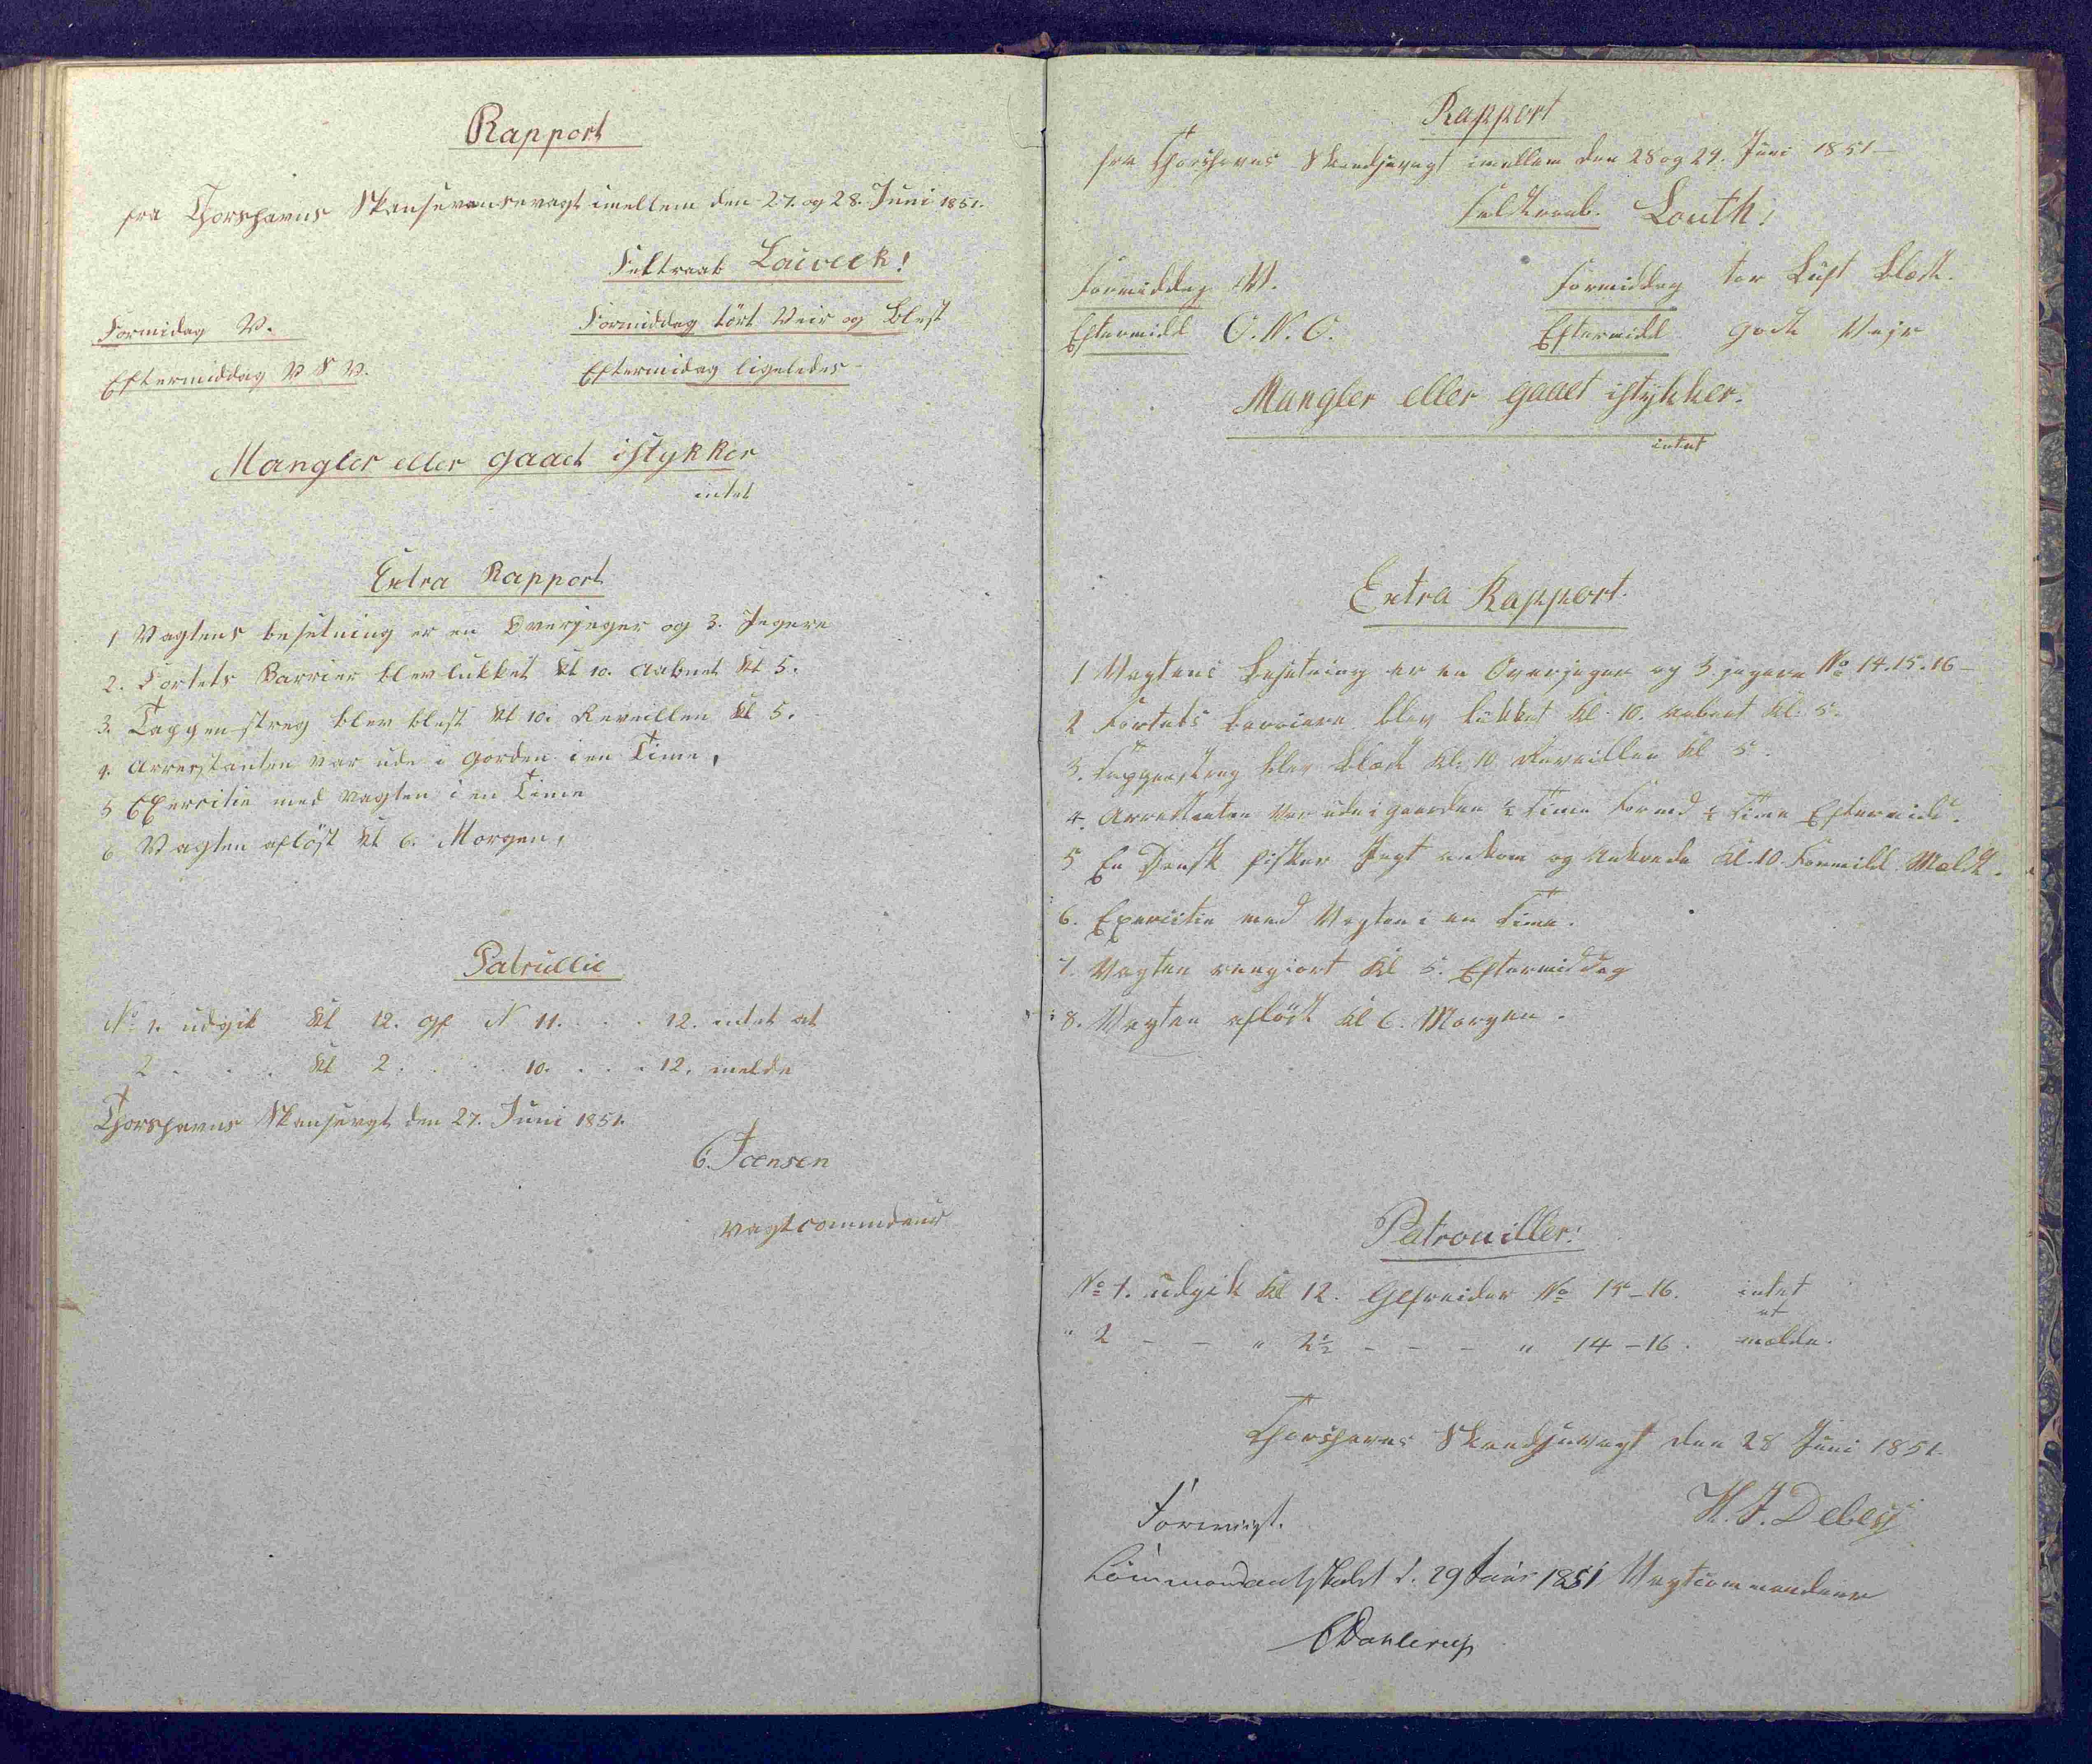 Rapport
fra Thorshavns Skansevansevagt imellem den 27. og 28. Juni 1851.
Feltraab Laiveck!
Formidag V. Formiddag tört Veir og Blest
Eftermiddag V S V. Eftermidag ligeledes
Mangler eller gaaet istykker
intet
Extra Rapport
1 Vagtens besetning er en Overjeger og 3. Jegere
2. Fortets Barrier blev lukket Kl 10. aabnet Kl 5.
3. Tappenstreg blev blest Kl 10. Reveillen Kl 5.
4. Arrestanten var ude i Gorden i en Time,
5 Exercitie med Vagten i en Time
6 Vagten aflöst Kl 6. Morgen,
Patrullie
No 1. udgik Kl 12. Gf N 11. . . . 12. intet at
2 . . . Kl 2 . . . . 10. . . . 12. melde
Thorshavns Skansevagt den 27. Juni 1851.
Joensen
Vagtcommdeur
Rapport
fra Thorshavns Skandsevagt imellem den 28 og 29. Juni 1851
Feldtraab. Louth!
Formiddag W. Formiddag tor Luft Blæst.
Eftermidd O.N.O. Eftermidd godt Vejr
Mangler eller gaaet istykker.
intet
Extra Rapport.
1 Vagtens Besetning er en Overjeger og 3 jegere No 14.15.16
2 Fortets barriere blev lukket Kl. 10. aabnet Kl. 5.
3. Tappenstreg blev blæst Kl. 10 Reveillen Kl 5.
4. Arrestanten var ude i gaarden ½ Time Formd ½ Time Eftermidd.
5 En Dansk fisker Jagt ankom og Ankrede Kl. 10. Formidd. Mældt.
6. Exercitie med Vagten i en Time.
7. Vagten rengiort Kl 5. Eftermiddag
8. Vagten aflöst Kl 6. Morgen.
Patrouiller:
No 1. udgik Kl 12. Gefreider No 15-16. intet
at
" 2 - - " 2½ - - - " 14-16. mælde.
Thorshavns Skandsevagt den 28 Juni 1851.
H. J. Debes
Forevist.
Commandantskabet d. 29 Juni 1851 Vagtcommandeur
Dahlerup